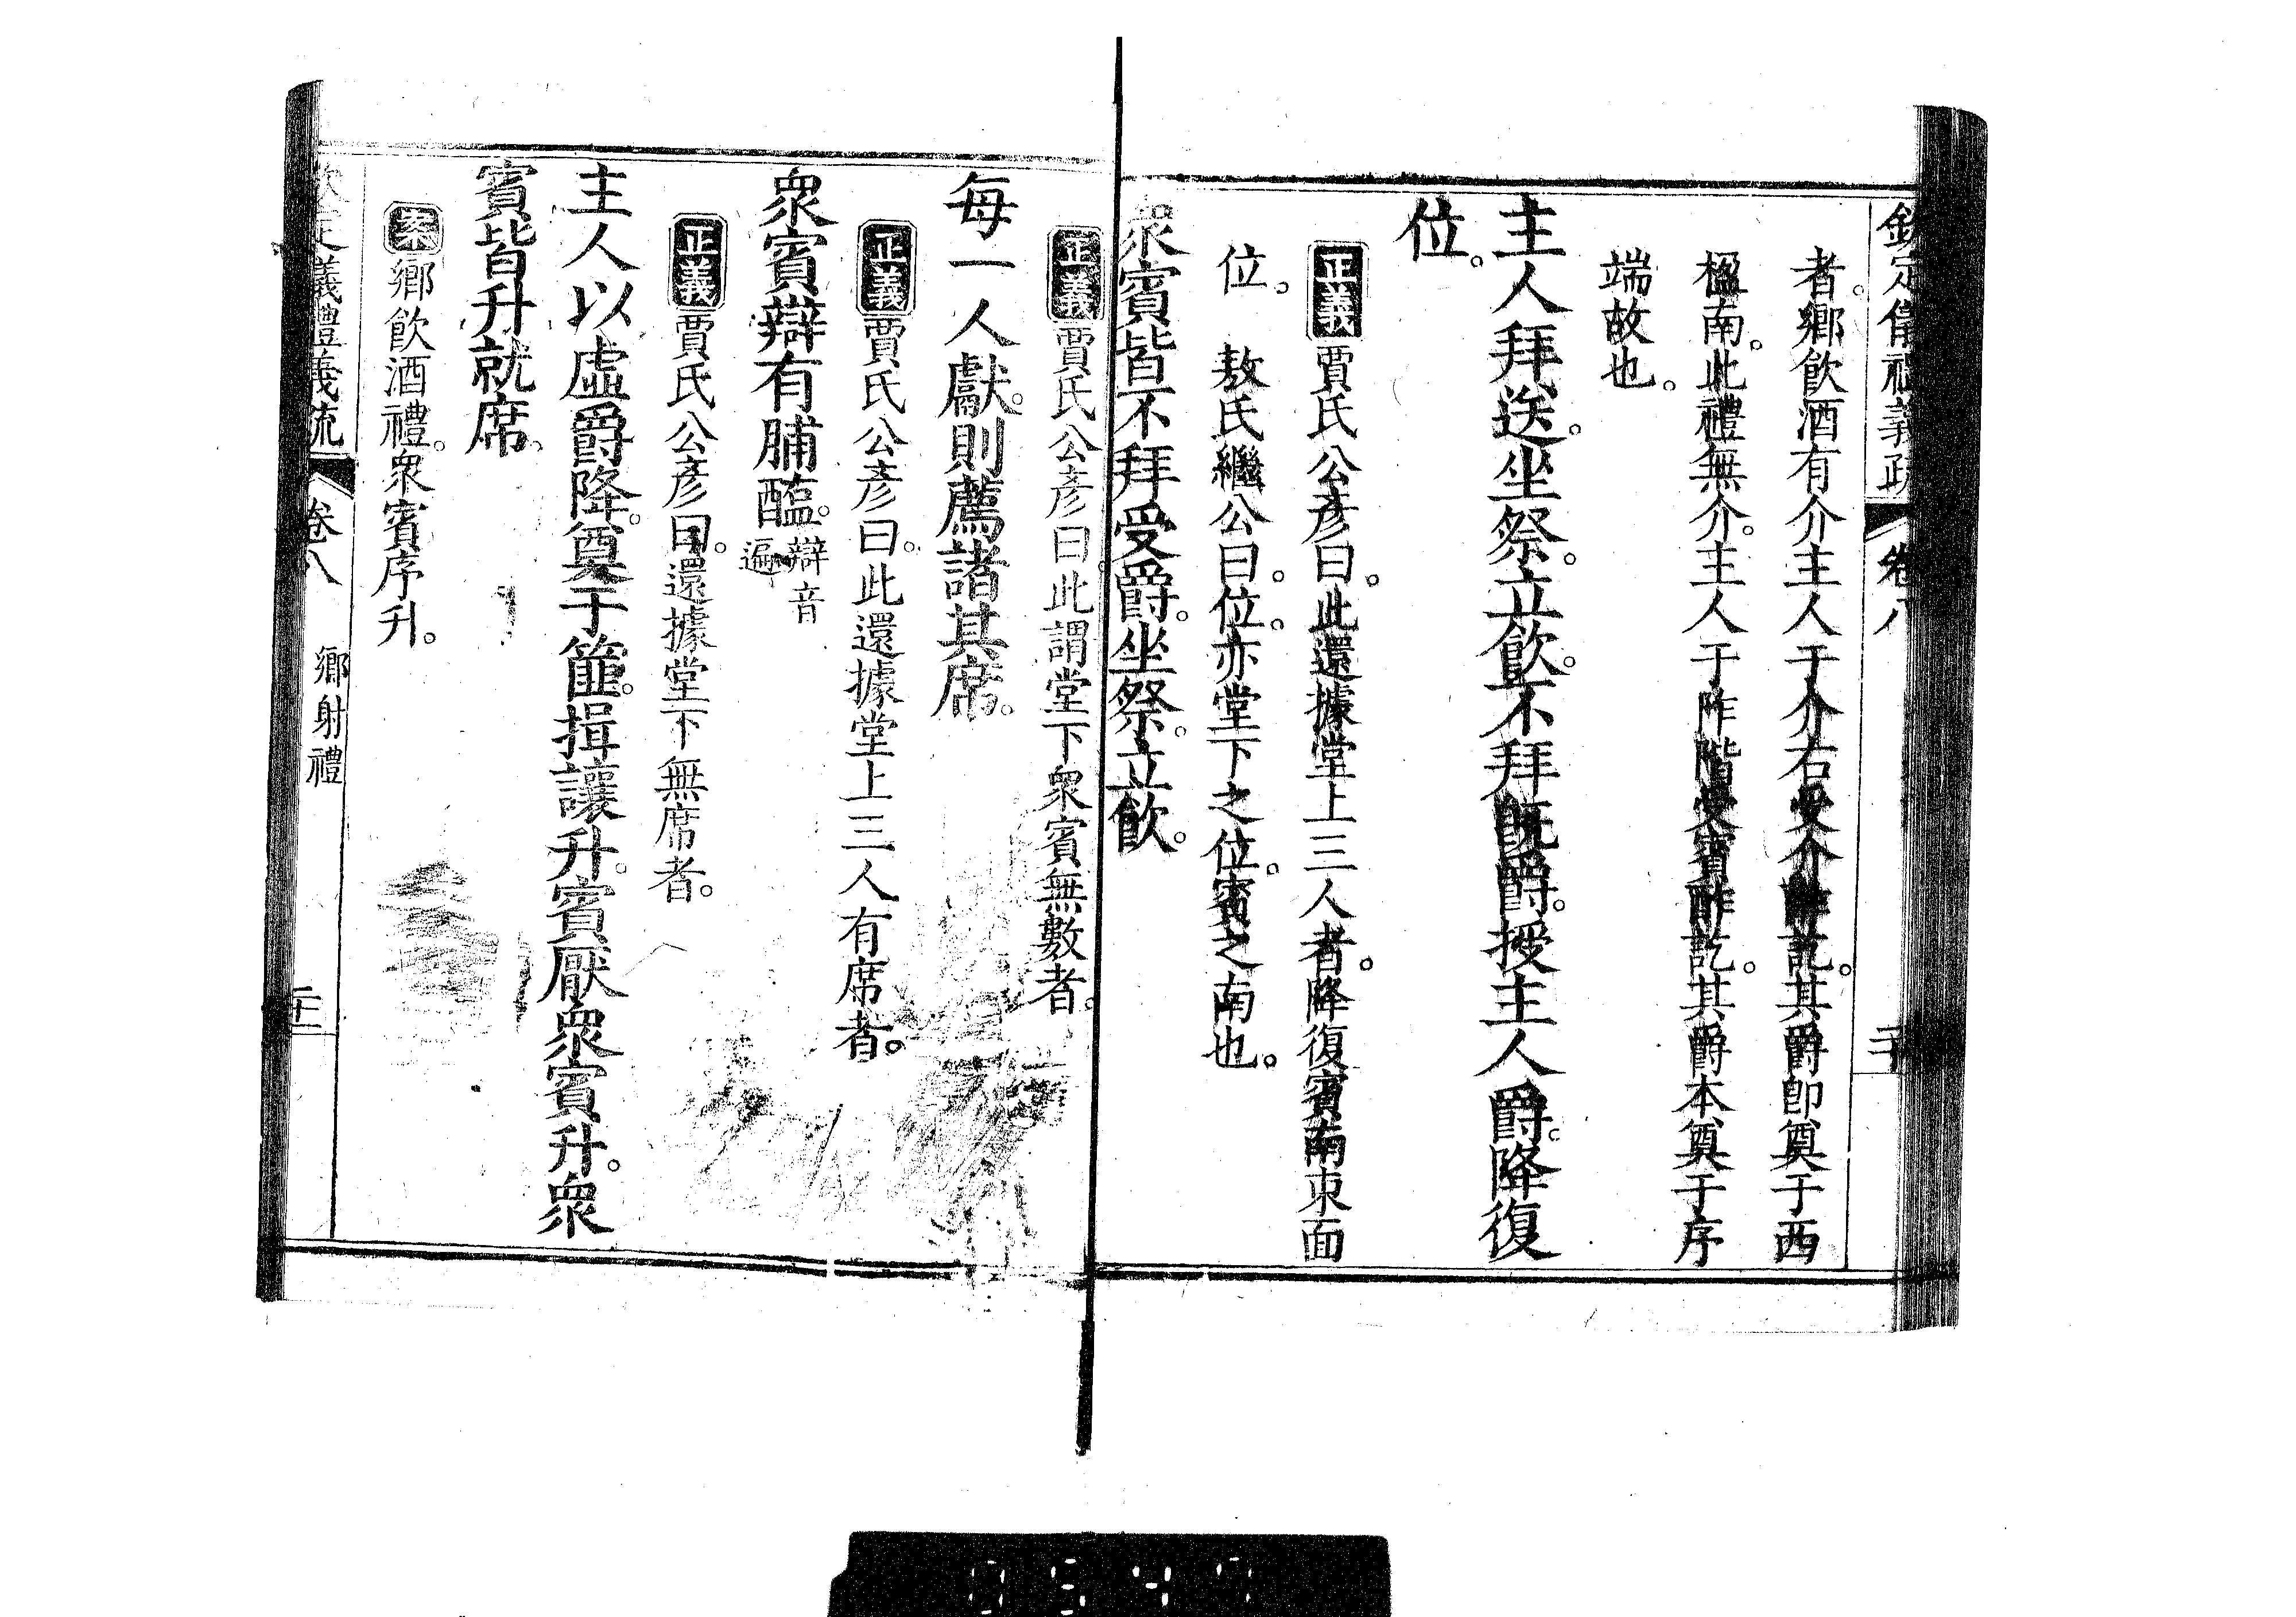 欽定儀禮義疏 卷八
者。鄉飲酒有介主人于介右受介酢訖。其爵卽奠于西
楹南。此禮無介。主人于阼階受賓酢訖。其爵本奠于序
端故也。
主人拜送。坐祭。立飲。不拜既爵。授主人爵。降復
位。
正義賈氏公彥曰。此還據堂上三人者。降復賓南東面
位。 敖氏繼公曰。位。亦堂下之位。賓之南也。
衆賓皆不拜受爵。坐祭。立飲。
正義賈氏公彥曰。此謂堂下衆賓無數者。
每一人獻。則薦諸其席。
正義賈氏公彥曰。此還據堂上三人有席者。
衆賓辯有脯醢。辯音遍
正義賈氏公彥曰。還據堂下無席者。
主人以虛爵降。奠于篚。揖讓升。賓厭衆賓升。衆
賓皆升就席。
案鄉飲酒禮。衆賓序升。
欽定儀禮義疏 卷八 鄉射禮